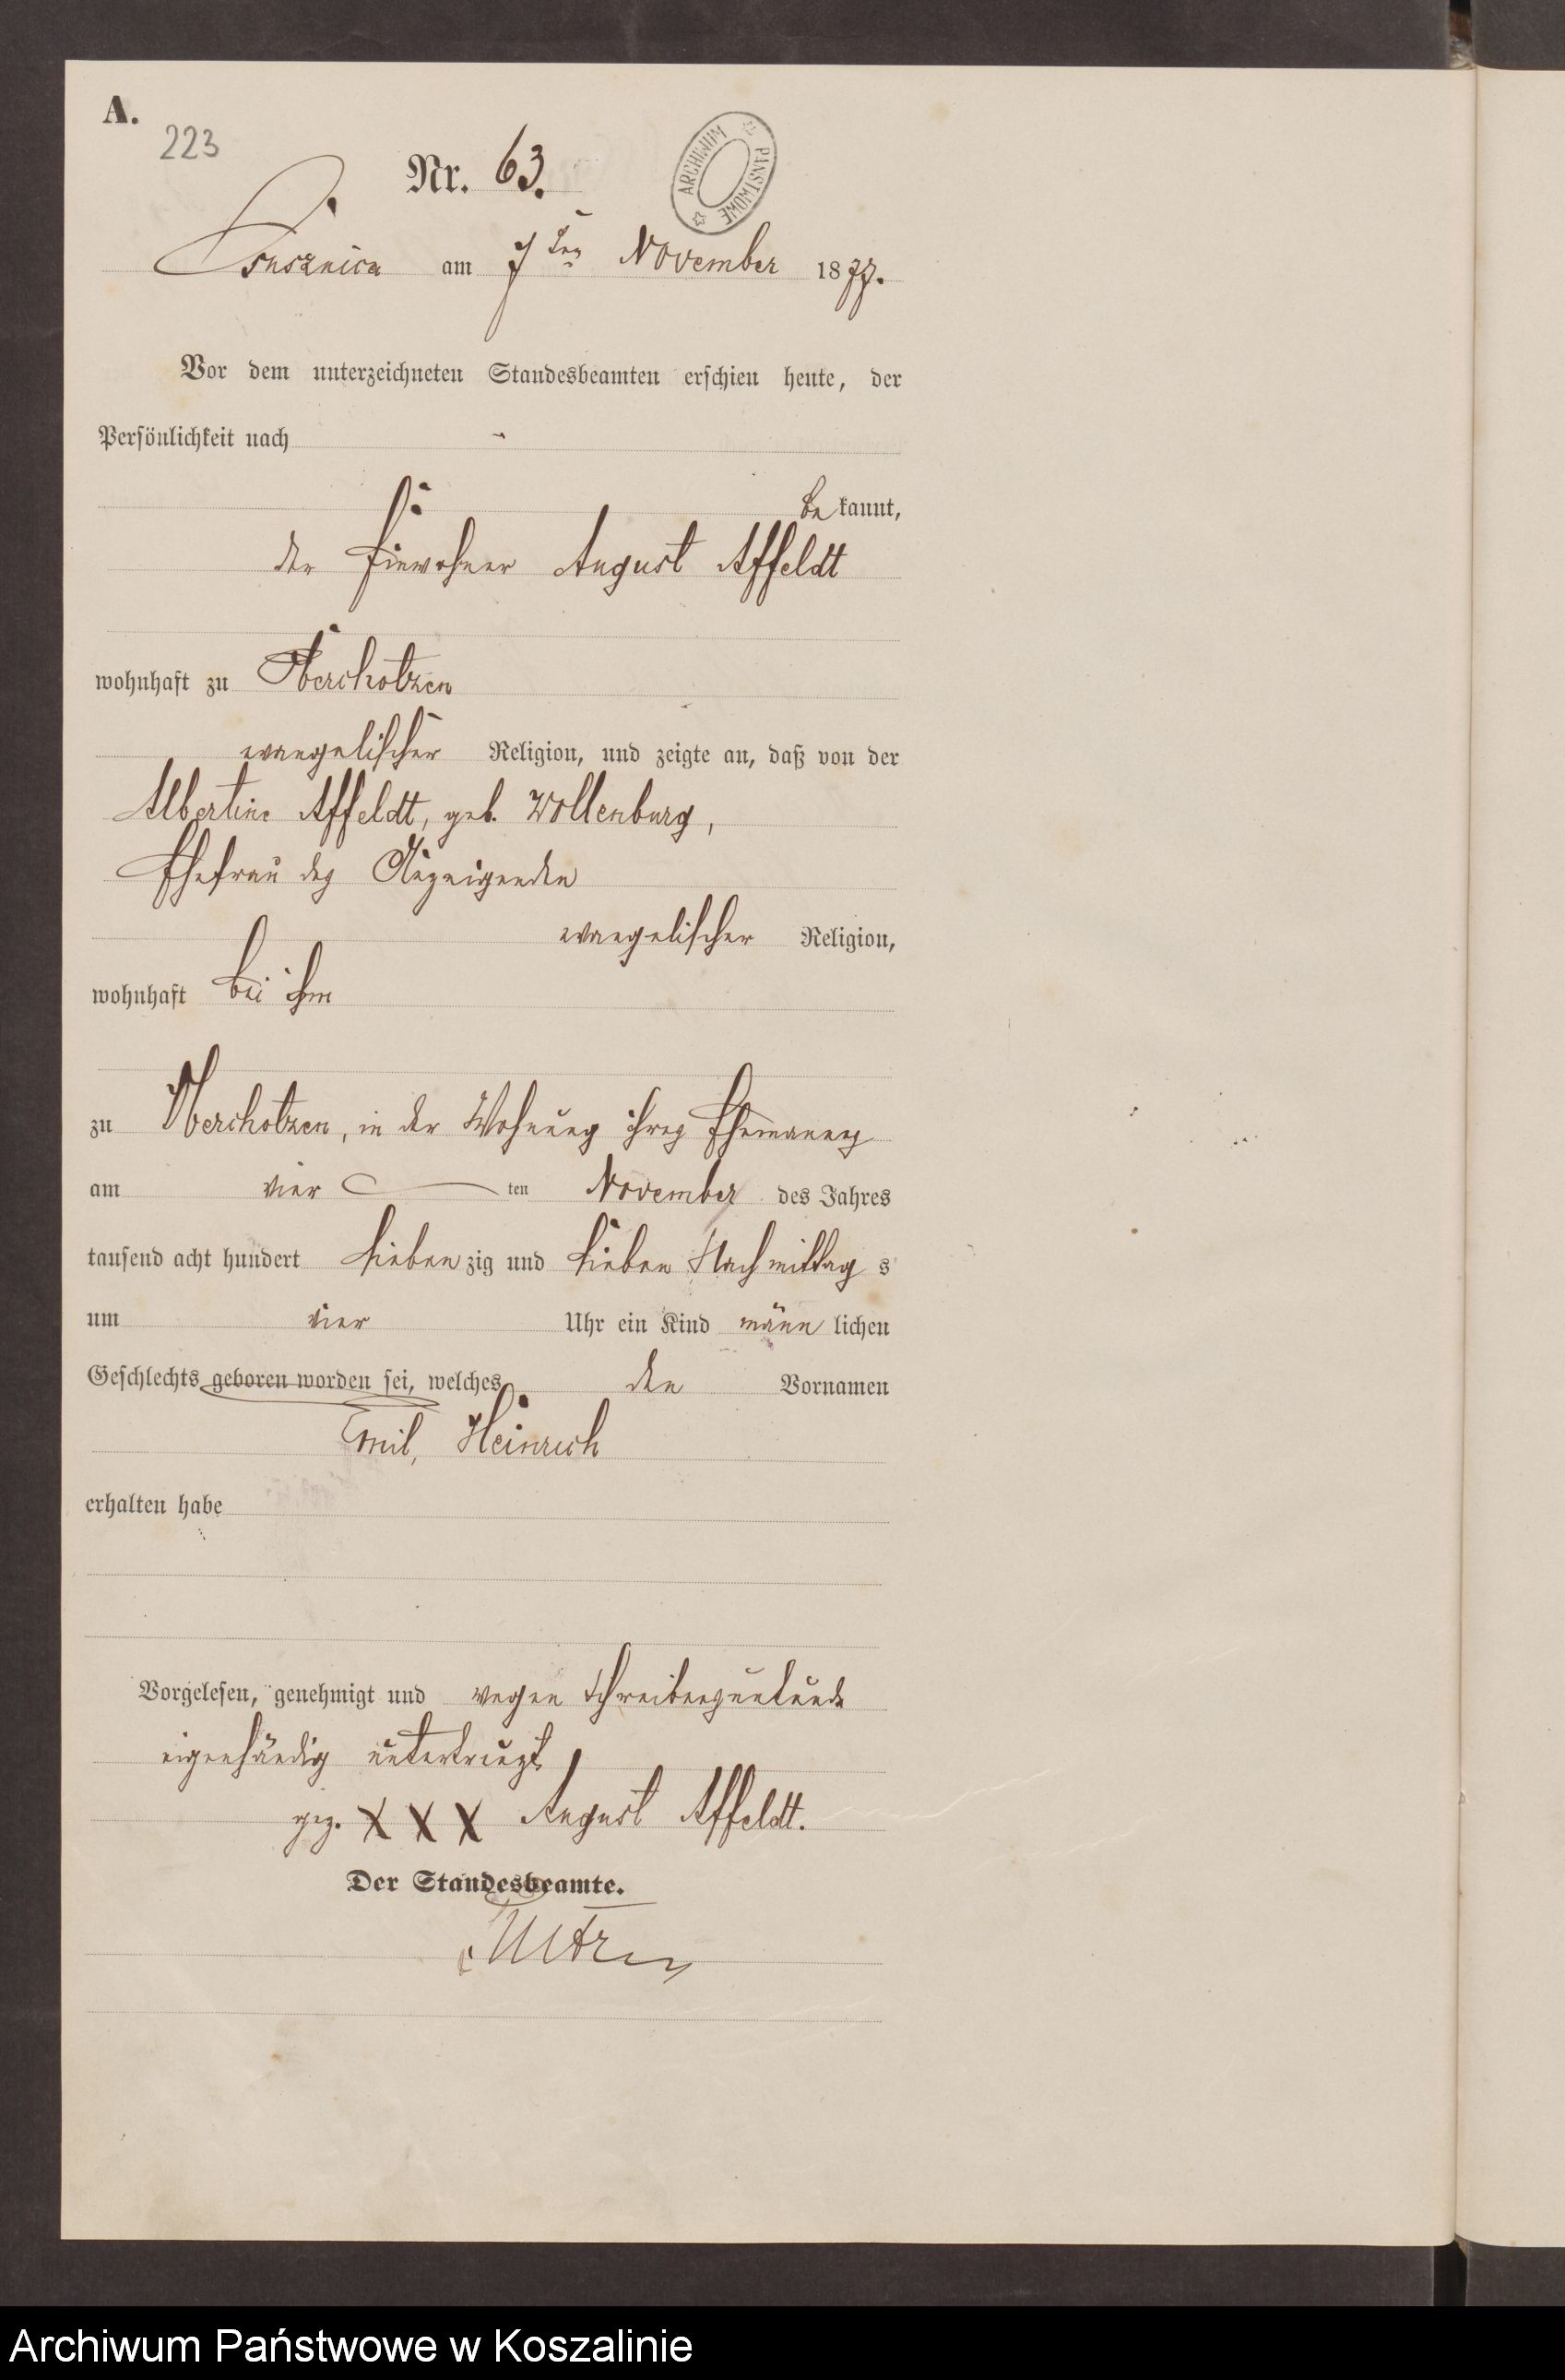 A.
223
Nr. 63.
ARCHIWUM PAŃSTWOWE
am 7ten November 1877.
Vor dem unterzeichneten Standesbeamten erschien heute, der
Persönlichkeit nach
be kannt,
der Einwohner August Affeldt
wohnhaft zu Oberchotzen
evangelischer Religion, und zeigte an, daß von der
Albertine Affeldt, geb. Wollenburg,
Ehefrau des Anzeigenden
evangelischer Religion,
wohnhaft bei ihm
zu Oberchotzen, in der Wohnung ihres Ehemannes
am vier ten November des Jahres
tausend acht hundert sieben zig und sieben Nachmittag s
um vier Uhr ein Kind männ lichen
Geschlechts geboren worden sei, welches den Vornamen
Emil, Heinrich
erhalten habe
Vorgelesen, genehmigt und wegen Schreibensunkunde
eigenhändig unterkreuzt
gez. X X X August Affeldt.
Der Standesbeamte.
Archiwum Państwowe w Koszalinie